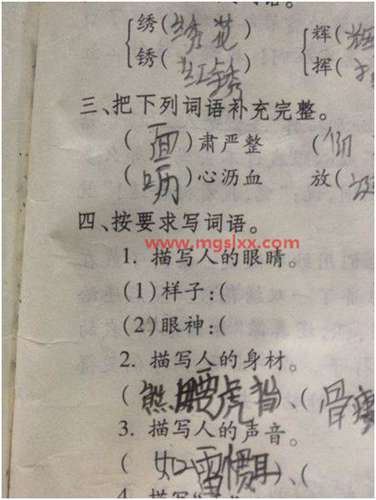 绣(绣花) 辉(辉
锈(红锈) 挥(
三、把下列词语补充完整。
(面)肃严整 (
(呖)心沥血 放(
四、按要求写词语。
www.mgslxx.com
1. 描写人的眼睛。
(1)样子:(
(2)眼神:(
2. 描写人的身材。
(熊腰虎背)、(骨瘦
3. 描写人的声音。
(如雷惯耳)、(